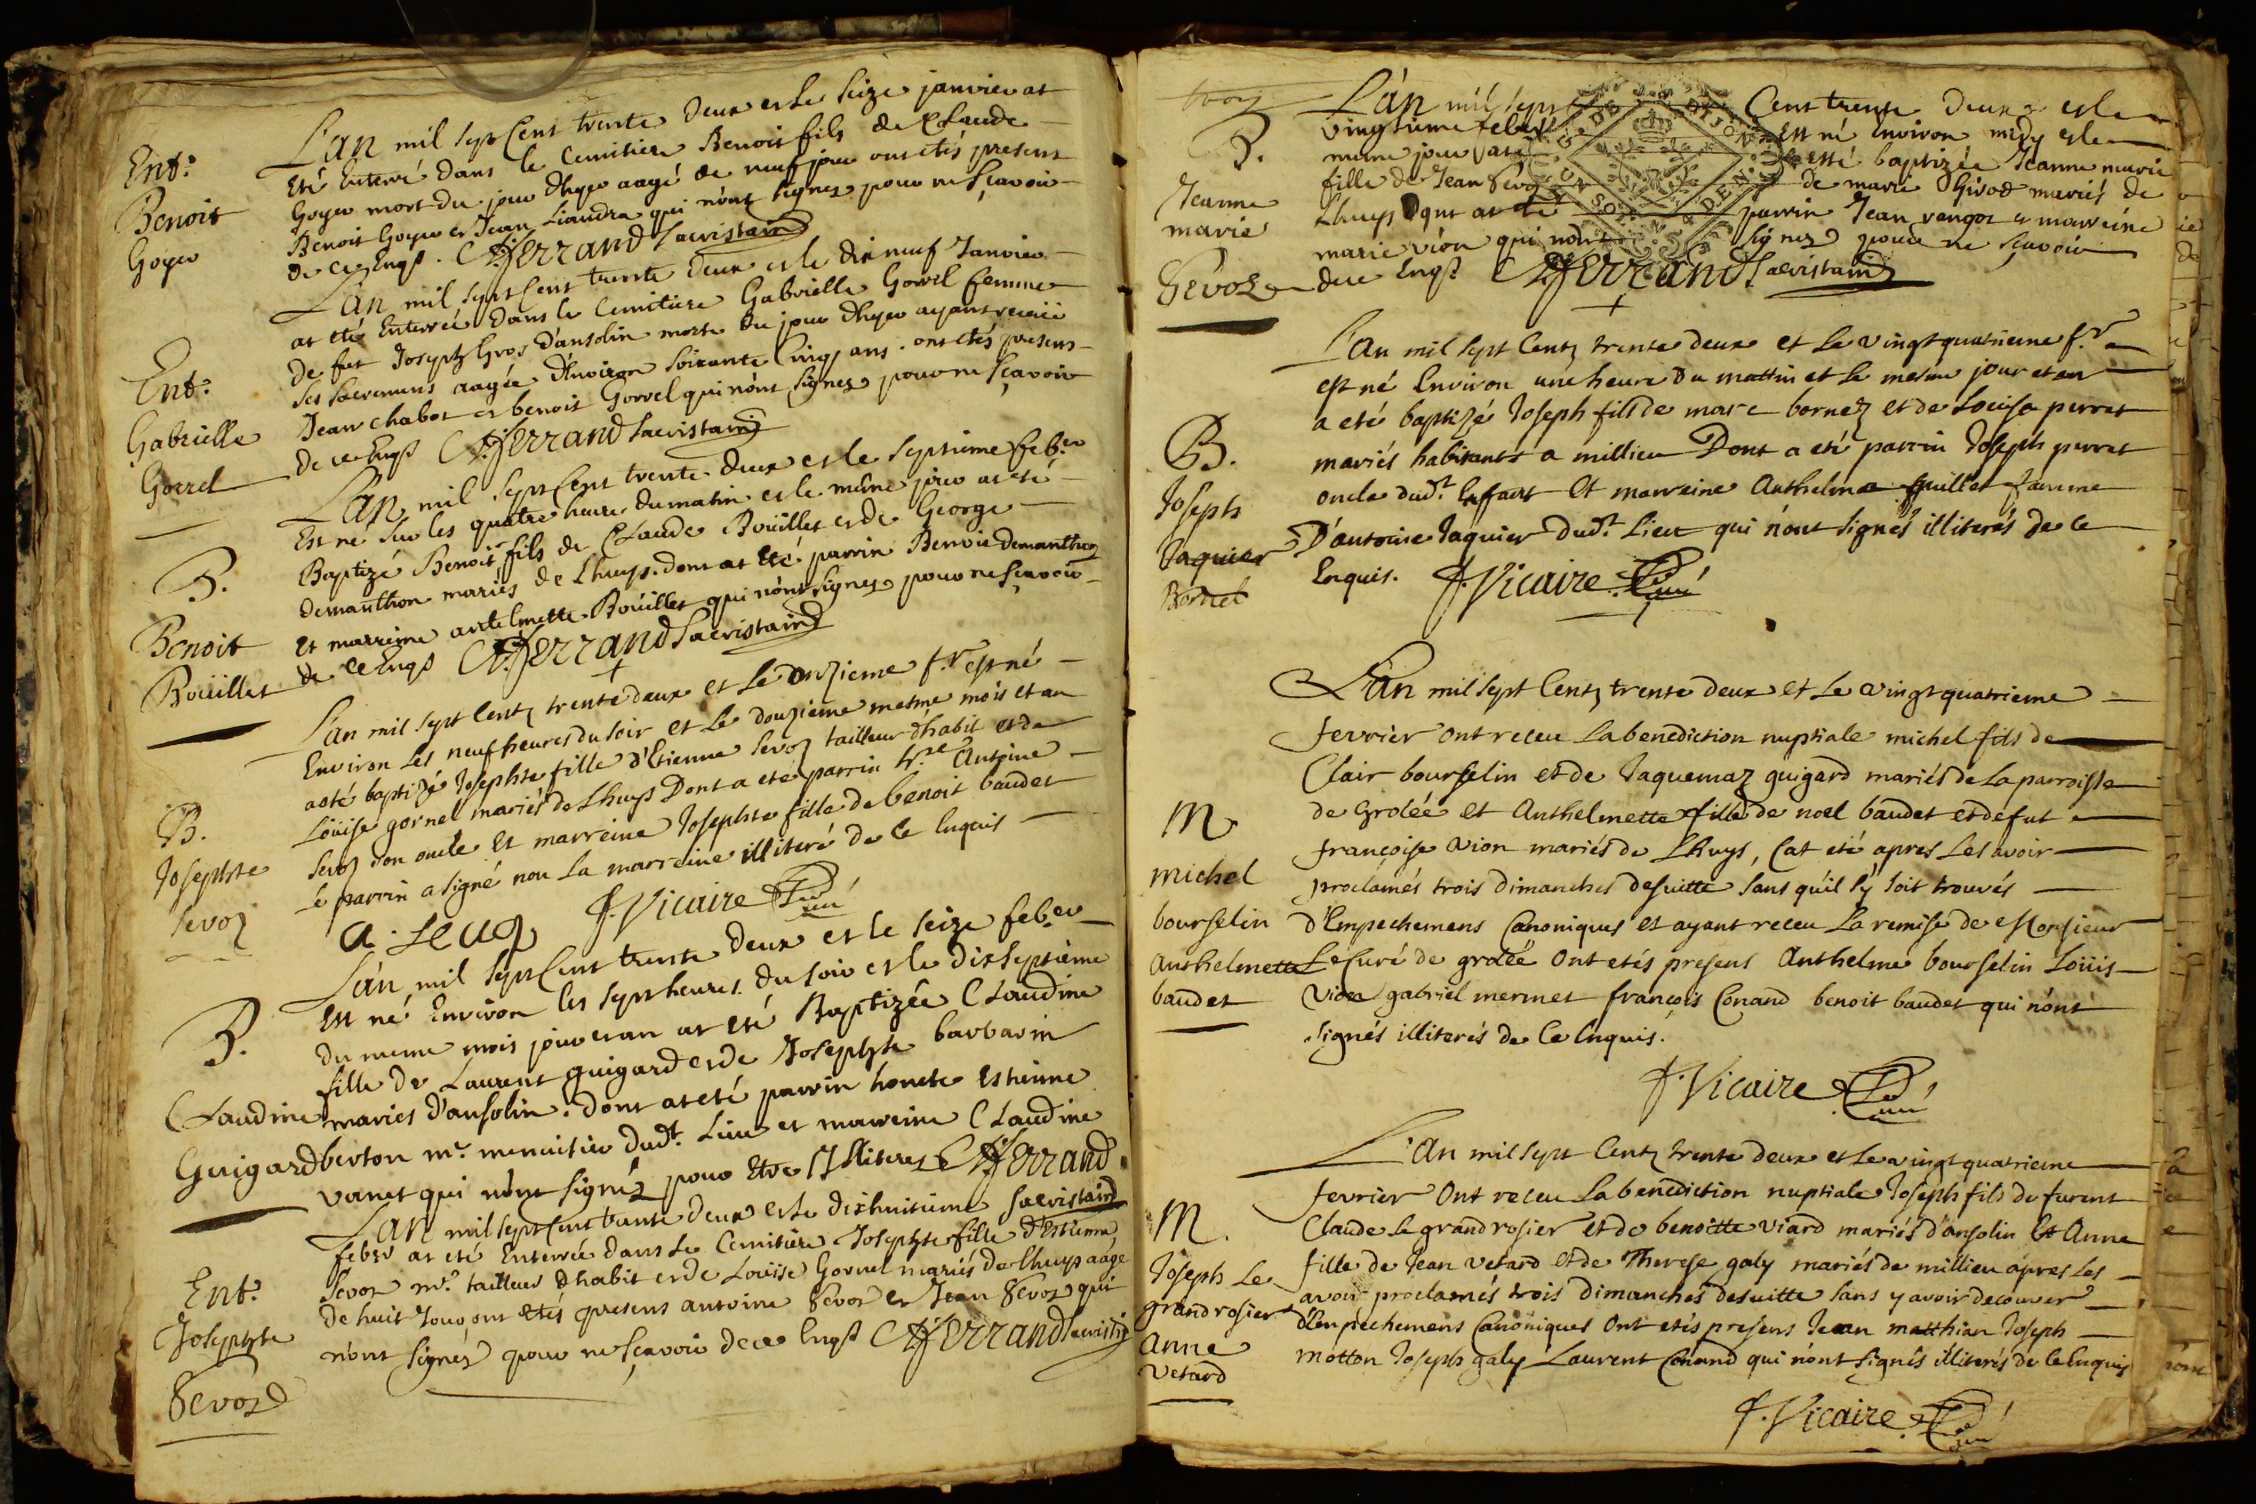 Ent.
Benoit
Goyer
L'an mil sept Cent trente Deux et le seize janvier at
Eté Enterré dans le Cemitiere Benoit fils de Claude
Goyer mort du jour dhyer aagé de neuf jour ont etés present
Benoit Goyer et Jean Liaudra qui nont signez pour ne sçavoir
de ce Enqs. Ferrand Sacristain
Ent.
Gabrielle
Gorrel
L'an mil sept Cent trente Deux et le dix neuf Janvier
at eté Enterrée dans le Cemitiere Gabrielle Gorrel femme
de fut Joseph Gros Dansolin morte du jour dhyer ayant receüe
ses sacremens aagée d'Environ soixante Cinq ans. ont etés presens
Jean chabot et benoit Gorrel qui nont signez pour ne sçavoir
de ce Enqs Ferrand Sacristain
B.
Benoit
Boüillet
L'an mil sept Cent trente deux et le septieme feb.er
Est né sur les quatre heure du matin et le même jour at eté
Baptizé Benoit fils de Claude Boüillet et de George
demanthon mariés de Lhuys. dont at Eté parrin Benoit demanthon
et marreine antelmette Boüillet qui nont signez pour ne sçavoir
de ce Enqs Ferrand Sacristain
B.
Josephte
Sevoz
L'an mil sept Centz trente deux et Le onzieme f.r est né
Environ Les neuf heures du soir et Le douzieme mesme mois et an
a eté baptizé Josephte fille d'Etienne Sevoz tailleur d'habit et de
Loüise gornel mariés de Lhuys Dont a eté parrin Antoine
Sevoz son oncle Et marreine Josephte fille de benoit baudet
Le parrin a signé non La marreine illiteré de Ce Enquis
a. Seuoz J. Vicaire Curé
B.
Claudine
Guigard
L'an mil sept Cent trente Deux et le seize feb.er
Est né Environ les sept heures du soir et le dixseptième
du meme mois jour et an at eté Baptizée Claudine
fille de Laurent guigard et de Josephte barbarin
mariés d'ansolin. dont at eté parrin honete Estienne
berton m.e menuisier dud.t Lieu et marreine Claudine
vanet qui nont signéz pour Etre Illiterez Ferrand
Sacristain
Ent.
Josephte
Sevoz
L'an mil sept Cent trente deux et le dixhuitieme
feb.er at eté Enterrée dans Le Cemitiere Josephte fille d'Estienne
Sevoz m.e tailleur dhabit et de Loüise Gornel mariés de Lhuys aagé
de huit Jour ont Etés presens antoine Sevoz et Jean Sevoz qui
nont signéz pour ne sçavoir de ce Enqs Ferrand Sacristain
B.
Jeanne
marie
Sevoz
L'an mil sept Cent trente Deux et le
vingtieme feb.er Est né Environ midy et le
meme jour at Esté baptizée Jeanne marie
fille de Jean Sevoz de marie Givod mariés de
Lhuys Dont at eté parrin Jean vengoz et marreine
marie vion qui nont signez pour ne sçavoir
de ce Enqs Ferrand Sacristain
DE DIJON
B.
Joseph
Jaquier
Bornet
L'an mil sept Centz trente deux et Le vingt quatrieme f.r
est né Environ une heure du mattin et Le mesme jour et an
a eté baptizé Joseph fils de marc bornez et de Loüise perret
mariés habitants a millieu Dont a eté parrin Joseph perret
oncle dud.t Enfant Et marreine Anthelme guillet famme
D'antoine Jaquier dud.t Lieu qui n'ont signés illiterés de Ce
Enquis. J. Vicaire Curé
M
michel
bourselin
Anthelmette
baudet
L'an mil sept Centz trente deux et Le vingt quatrieme
fevrier ont receu La benediction nuptiale michel fils de
Clair bourselin et de Jaquemaz guigard mariés de La parroisse
de Grolée Et Anthelmette fille de noel baudet et defut
françoise vion mariés de Lhuys, Cat eté apres Les avoir
proclamés trois dimanches desuitte sans qu'il s'y soit trouvés
d'Empechemens Canoniques et ayant receu La remise de Monsieur
Le Curé de grolée ont etés presens Anthelme bourselin Loüis
vion gabriel mermet françois Conand benoit baudet qui n'ont
signés illiterés de Ce Enquis.
J. Vicaire Curé
M.
Joseph Le
grand rosier
Anne
Vetard
L'an mil sept Centz trente deux et Le vingt quatrieme
fevrier ont receu La benediction nuptiale Joseph fils defurent
Claude Le grand rosier et de benoitte viard mariés d'ansolin Et Anne
fille de Jean vetard et de Therese galy mariés de millieu apres Les
avoir proclamés trois dimanches desuitte sans y avoir decouver
d'Empechemens Canoniques ont etés presens Jean matthian Joseph
motton Joseph galy Laurent Conand qui n'ont signés illiterés de Ce Enquis
J. Vicaire Curé